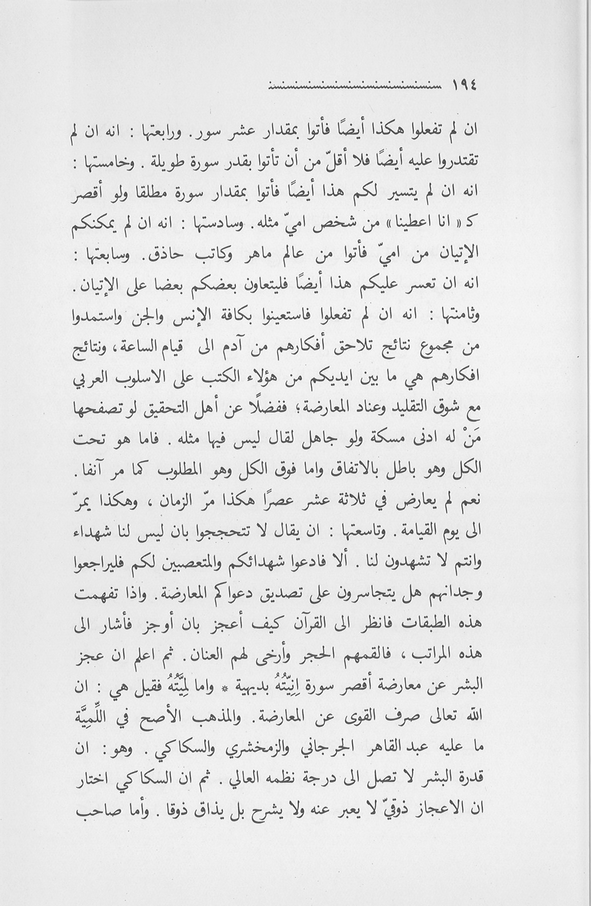 ١٩٤
ان لم تفعلوا هكذا أيضًا فأتوا بمقدار عشر سور. ورابعتها : انه ان لم
تقتدروا عليه أيضًا فلا أقلّ من أن تأتوا بقدر سورة طويلة . وخامستها :
انه ان لم يتسير لكم هذا أيضًا فأتوا بمقدار سورة مطلقا ولو أقصر
كـ «انا اعطينا» من شخص اميّ مثله. وسادستها : انه ان لم يمكنكم
الإتيان من اميّ فأتوا من عالم ماهر وكاتب حاذق. وسابعتها :
انه ان تعسر عليكم هذا أيضًا فليتعاون بعضكم بعضا على الإتيان.
وثامنتها : انه ان لم تفعلوا فاستعينوا بكافة الإنس والجن واستمدوا
من مجموع نتائج تلاحق أفكارهم من آدم الى قيام الساعة، ونتائج
افكارهم هي ما بين ايديكم من هؤلاء الكتب على الاسلوب العربي
مع شوق التقليد وعناد المعارضة؛ ففضلًا عن أهل التحقيق لو تصفحها
مَنْ له ادنى مسكة ولو جاهل لقال ليس فيها مثله. فاما هو تحت
الكل وهو باطل بالاتفاق واما فوق الكل وهو المطلوب كما مر آنفا.
نعم لم يعارض في ثلاثة عشر عصرًا هكذا مرّ الزمان ، وهكذا يمرّ
الى يوم القيامة. وتاسعتها : ان يقال لا تتحججوا بان ليس لنا شهداء
وانتم لا تشهدون لنا . ألا فادعوا شهدائكم والمتعصبين لكم فليراجعوا
وجدانهم هل يتجاسرون على تصديق دعواكم المعارضة. واذا تفهمت
هذه الطبقات فانظر الى القرآن كيف أعجز بان أوجز فأشار الى
هذه المراتب ، فالقمهم الحجر وأرخى لهم العنان. ثم اعلم ان عجز
البشر عن معارضة أقصر سورة إِنِيّتُهُ بديهية * واما لِمِيَّتُهُ فقيل هي : ان
الله تعالى صرف القوى عن المعارضة. والمذهب الأصح في اللِّمِيَّة
ما عليه عبد القاهر الجرجاني والزمخشري والسكاكي . وهو: ان
قدرة البشر لا تصل الى درجة نظمه العالي . ثم ان السكاكي اختار
ان الاعجاز ذوقيّ لا يعبر عنه ولا يشرح بل يذاق ذوقا . وأما صاحب